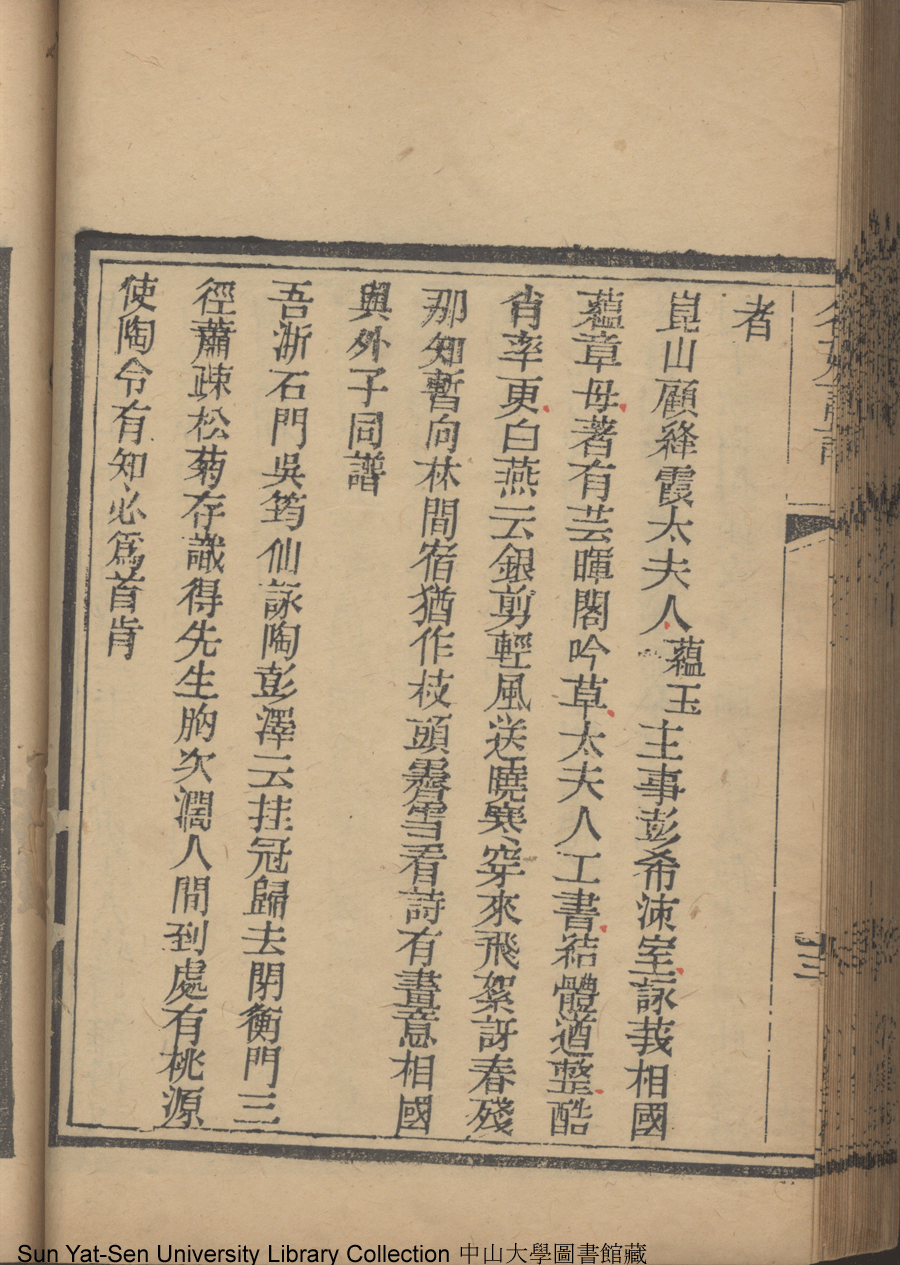 者
崑山顧絳霞太夫人蘊玉主事彭希洓室詠莪相國
蘊章母著有芸暉閣吟草太夫人工書結體遒整酷
肖率更白燕云銀剪輕風送曉寒穿來飛絮訝春殘
那知暫向林間宿猶作枝頭霽雪看詩有畫意相國
與外子同譜
吾浙石門吳筠仙詠陶彭澤云挂冠歸去閉衡門三
徑蕭疎松菊存識得先生胸次濶人間到處有桃源
使陶令有知必爲首肯
三
Sun Yat-Sen University Library Collection 中山大學圖書館藏